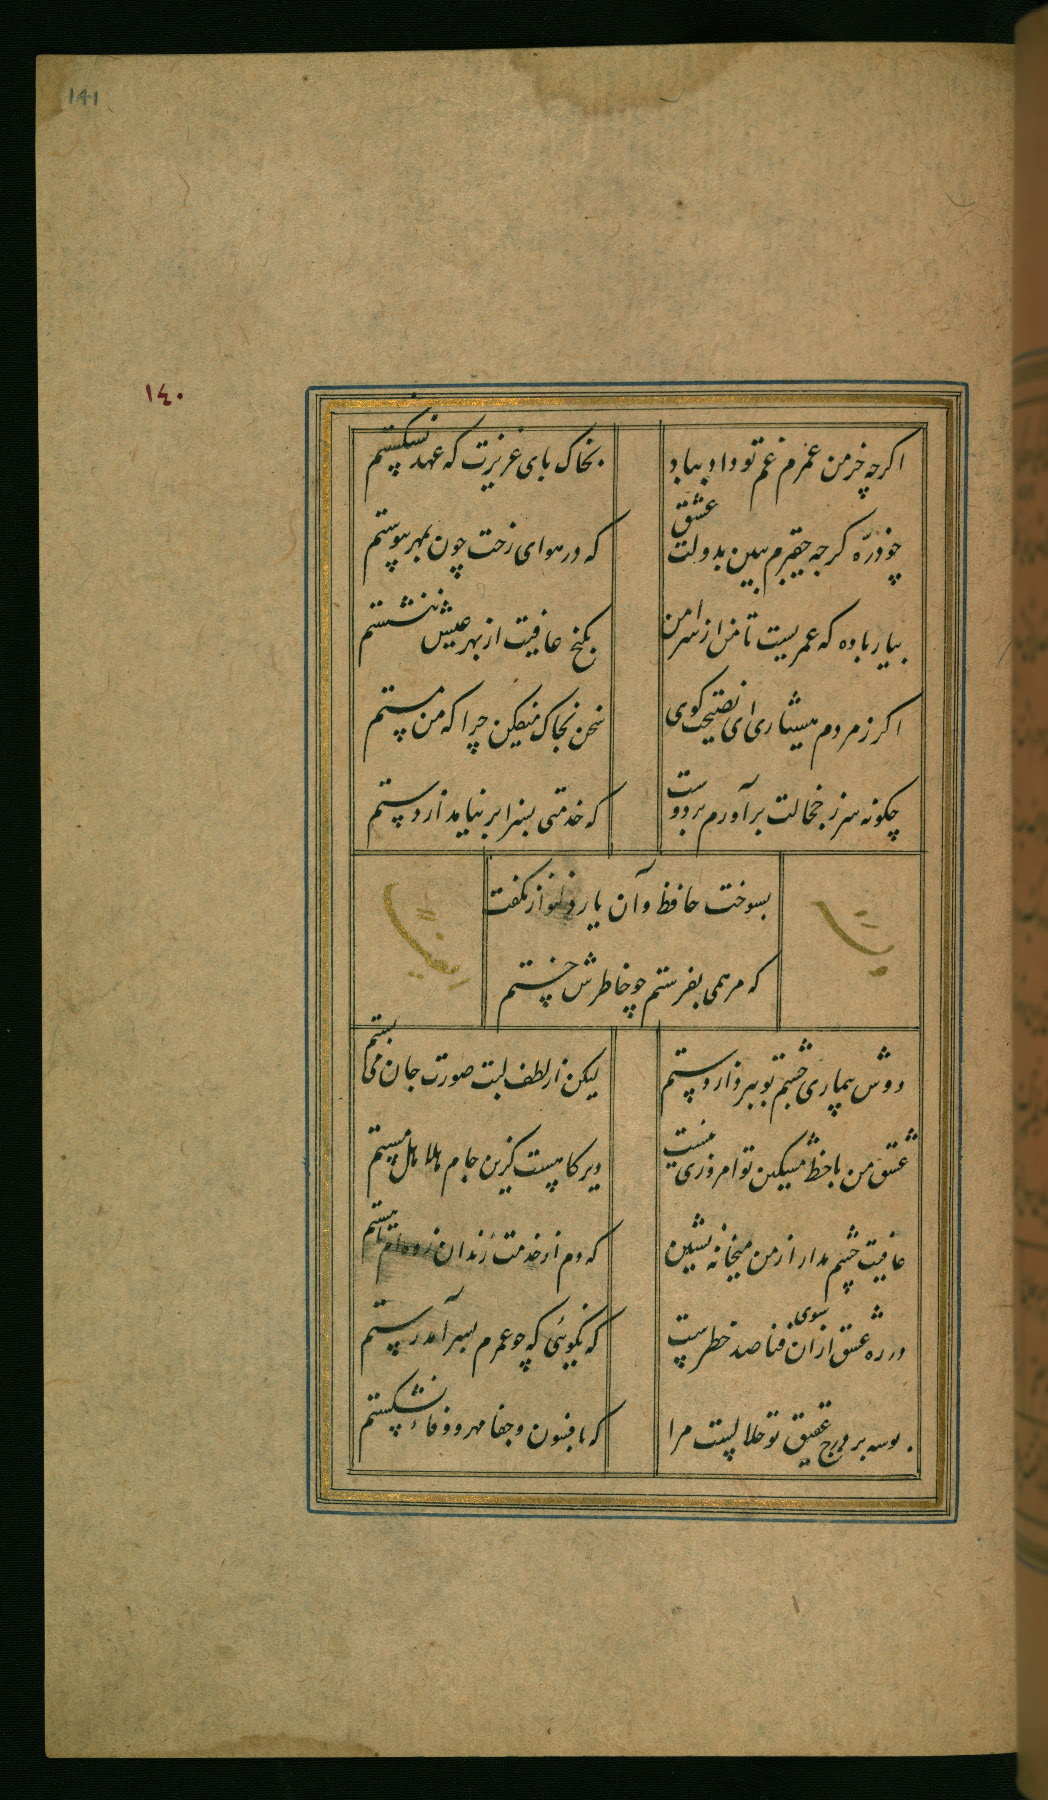 141
١٤٠
اکرچه خرمن عمرم غم تو داد بباد بخاک بای عزیزت که عهد نشکستم
چو ذرّه کرجه حقیرم ببین بدولت عشق که در هوای رخت چون بمهر پیوستم
بیار باده که عمریست تا من از سر امن بکنج عافیت از بهر عیش ننشستم
اکر ز مردم هشیاری ای نصیحت کوی سخن بخاک میفکن چرا که من مستم
چکونه سر ز خجالت برآورم بر دوست که خدمتی بسزا بر نیامد از دستم
بسوخت حافظ و آن یار دلنواز نکفت
که مرهمی بفرستم چو خاطرش خستم
دوش بیماری چشم تو ببرد از دستم لیکن از لطف لبت صورت جان می بستم
عشق من با خط مشکین تو امروزی نیست دیر کاهیست کزین جام هلاهل مستم
عافیت چشم مدار از من میخانه نشین که دم از خدمت رندان زده ام تا هستم
در ره عشق از ان سوی فنا صد خطرست که نکوئی که چو عمرم بسر آمد رستم
بوسه بر درج عقیق تو حلالست مرا که بافسون و جفا مهر و وفا نشکستم